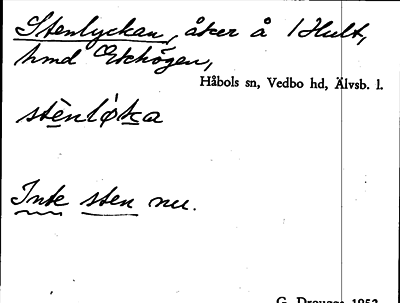 Stenlyckan, åker å 1 Hult,
hmd Ekhögen,
Håbols sn, Vedbo hd, Älvsb. l.
stènlø̀ka
Inte sten nu.
G. Drougge 1952